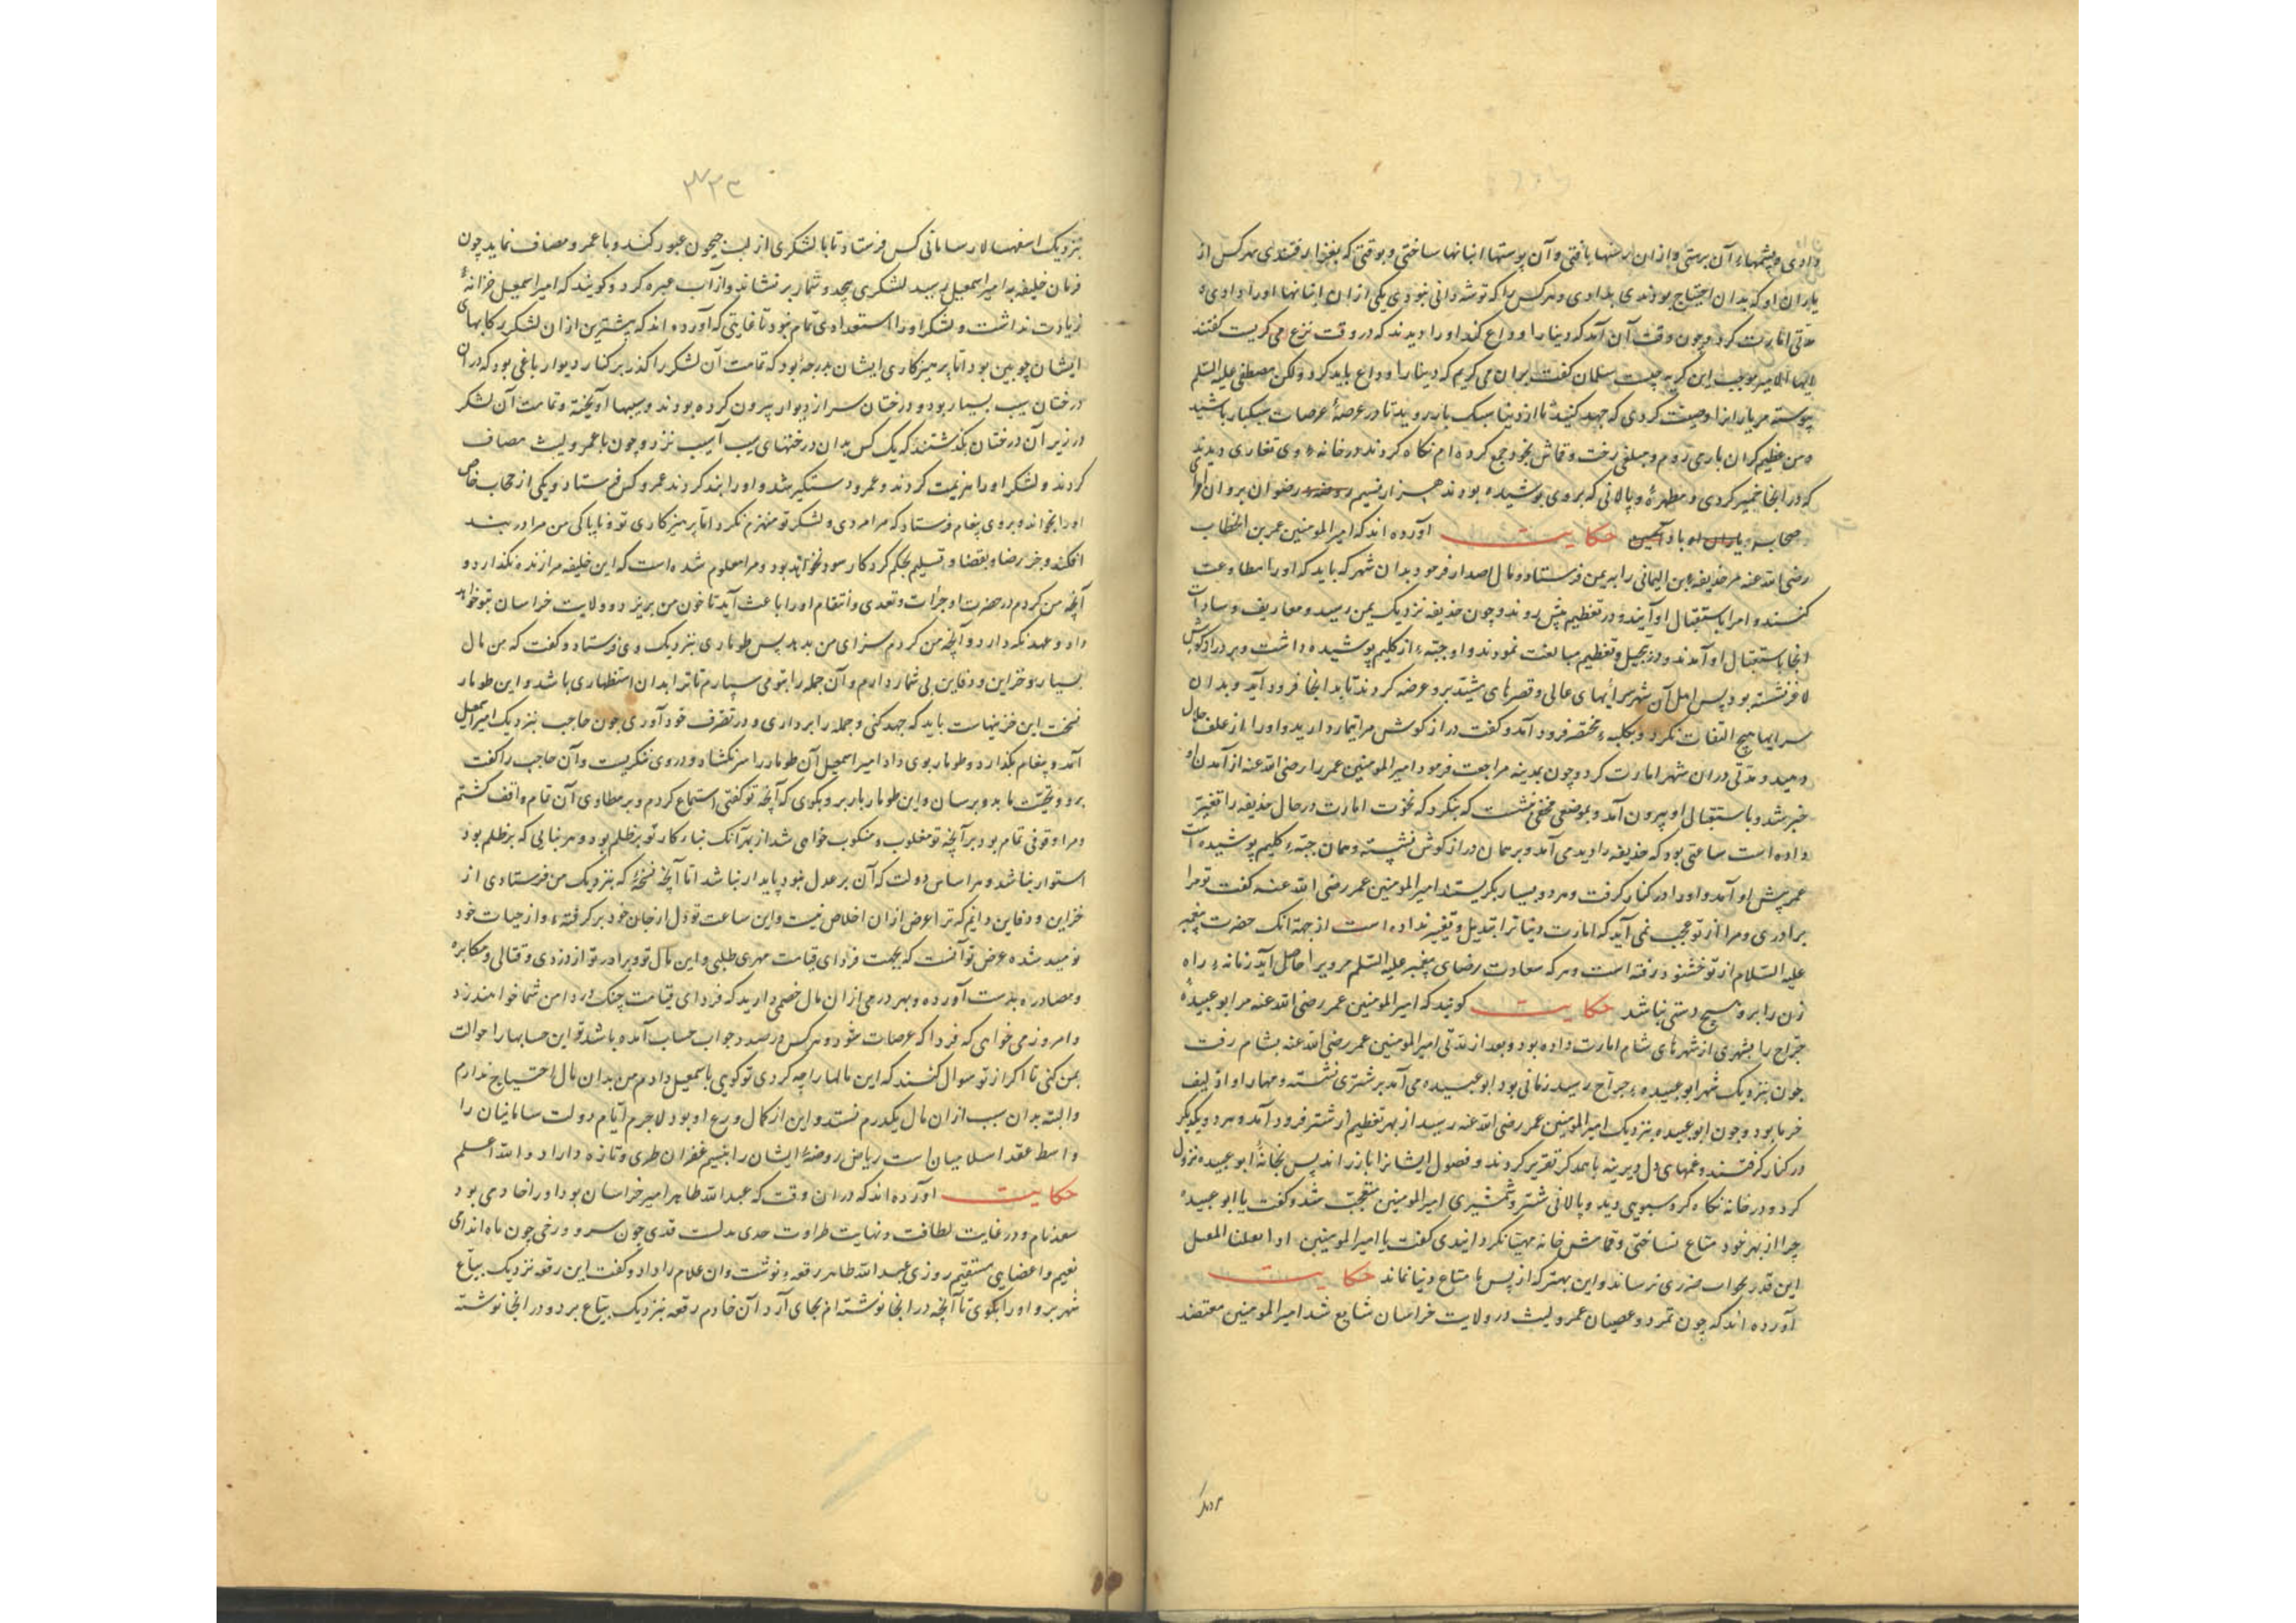 دادی و پشمهاء آن برستی و ازان رسنها بافتی و آن پوستها انبانها ساختی و بوقتی که بغزا رفتندی هر کس از
یاران او که بدان احتیاج بودندی بدادی و هر کس را که توشه دانی نبودی یکی ازان انبانها اورا دادی
مدتی امارت کرد و چون وقت آن آمد که دنیا را وداع کند اورا دیدند که در وقت نزع می گریست گفتند
ایها الامیر موجب این گریه چیست سلمان گفت بران می گریم که دنیا را وداع باید کرد ولکن مصطفی علیه السلم
پیوسته مر یارانرا وصیت کردی که جهد کنید تا از دنیا سبک بار بروید تا در عرصهٔ عرصات سبکبار باشید
و من عظیم گران باری دارم و مبلغی رخت و قماش بخود جمع کرده ام نگاه کردند در خانهٔ وی تغاری دیدند
که در انجا خمیر کردی و مطهرهٔ و پالانی که بروی پوشیده بودند هزار نسیم رضوان بر روان او
صحابه و یاران او باد آمین حکایت آورده اند که امیر المومنین عمر بن الخطاب
رضی الله عنه مر حذیفه بن الیمانی را به یمن فرستاد و مثال اصدار فرمود بدان شهر که باید که اورا مطاوعت
کنند و امرا باستقبال او آیند و در تعظیم پیش روند و چون حذیفه نزدیک یمن رسید و معاریف و سادات
انجا باستقبال او آمدند و در تبجیل و تعظیم مبالغت نمودند و او جبّهٔ از گلیم پوشیده داشت و بر دراز گوش
لاغر نشسته بود پس اهل آن شهر سرایهای عالی و قصرهای مشید برو عرضه کردند تا بدانجا فرود آید و بدان
سرایها هیچ التفات نکرد و بکلبهٔ مختصر فرود آمد و گفت دراز گوش مرا تیمار دارید و اورا از علف حلال
دهید و مدتی دران شهر امارت کرد و چون بمدینه مراجعت فرمود امیر المومنین عمر را رضی الله عنه از آمدن او
خبر شد و باستقبال او بیرون آمد و بموضعی مخفی نشست که بنگرد که نخوت امارت در حال حذیفه را تغییر
داده است ساعتی بود که حذیفه را دید می آمد و بر همان دراز گوش نشسته و همان جبّهٔ گلیم پوشیده است
عمر پیش او آمد و اورا در کنار گرفت و هر دو بسیار بگریستند امیر المومنین عمر رضی الله عنه گفت تو مرا
برادری و مرا از تو عجب نمی آید که امارت دنیا ترا تبدیل و تغییر نداده است از جهة انک حضرت پیغمبر
علیه السلام از تو خشنود رفته است و هر که سعادت رضای پیغمبر علیه السلم مرو یرا حاصل آید زمانهٔ راه
زن را برو هیچ دستی نباشد حکایت گویند که امیر المومنین عمر رضی الله عنه مر ابو عبیدهٔ
جرّاح را بشهری از شهرهای شام امارت داده بود و بعد از مدتی امیر المومنین عمر رضی الله عنه بشام رفت
چون بنزدیک شهر ابو عبیدهٔ جراح رسید زمانی بود ابو عبیده می آمد بر شتری نشسته و مهار او از لیف
خرما بود و چون ابو عبیده بنزدیک امیر المومنین عمر رضی الله عنه رسید از بهر تعظیم از شتر فرود آمد و هر دو یکدیگر
در کنار گرفتند و غمهای دل دیرینه با همدگر تقریر کردند و فصول ایشانرا باز راند پس بخانهٔ ابو عبیده نزول
کرد و در خانه نگاه کرد سبویی دید و پالانی شتر و شمشیری امیر المومنین متعجب شد و گفت یا ابو عبیده
چرا از بهر خود متاع نساختی و قماش خانه مهیا نگردانیدی گفت یا امیر المومنین
این قدر بخواب ضرری نرساند و این بهتر که از پس ما متاع دنیا نماند حکایت
آورده اند که چون تمرد و عصیان عمرو لیث در ولایت خراسان شایع شد امیر المومنین معتضد
۳۲۳
بنزدیک اسفهسالار سامانی کس فرستاد تا با لشکری از لب جیحون عبور کند و با عمرو مصاف نماید چون
فرمان خلیفه به امیر اسمعیل رسید لشکری بیحد و شمار برنشاند و از آب عبره کرد و گویند که امیر اسمعیل خزانهٔ
زیادت نداشت و لشکر اورا استعدادی تمام نبود تا غایتی که آورده اند که بیشترین ازان لشکر رکابهای
ایشان چوبین بود اما پرهیزکاری ایشان بدرجهٔ بود که تمامت آن لشکر را گذر بر کنار دیوار باغی بود که در آن
درختان سیب بسیار بود و درختان سر از دیوار بیرون کرده بودند و سیبها آویخته و تمامت آن لشکر
در زیر آن درختان بگذشتند که یک کس بدان درختهای سیب آسیب نزد و چون با عمرو لیث مصاف
کردند و لشکر اورا هزیمت کردند و عمرو دستگیر شد و اورا بند کردند عمرو کس فرستاد و یکی از حجاب خاص
اورا بخواند و بروی پیغام فرستاد که مرا مردی و لشکر تو منهزم نکرد اما پرهیزکاری تو و ناپاکی من مرا در بند
افکند و جز رضا بقضا و تسلیم بحکم کردکار سود نخواهد بود و مرا معلوم شده است که این خلیفه مرا زنده نگذارد و
آنچه من کردم در حضرت او جرأت و تعدی و انتقام اورا باعث آید تا خون من بریزد و ولایت خراسان بتو خواهد
داد و عهد نگه دارد و آنچه من کردم سزای من بدهد پس طوماری بنزدیک وی فرستاد و گفت که من مال
بسیار و خزاین و دفاین بی شمار دارم و آن جمله را بتو می سپارم تا ترا بدان استظهاری باشد و این طومار
نسخت این خزینهاست باید که جهد کنی و جمله را برداری و در تصرف خود آوری چون حاجب بنزدیک امیر اسمعیل
آمد و پیغام بگذارد و طومار بوی داد امیر اسمعیل آن طومار را سر نگشاد و در وی ننگریست و آن حاجب را گفت
برو و تحیّت ما بدو برسان و این طومار باز بر و بگوی که آنچه تو گفتی استماع کردم و بر مطاوی آن تمام واقف گشتم
و مرا وقوفی تمام بود بر آنچه تو مغلوب و منکوب خواهی شد از بهر آنک بنیاد کار تو بر ظلم بود و هر بنایی که بر ظلم بود
استوار نباشد و هر اساس دولت که آن بر عدل نبود پایدار نباشد اما آنچه نسخهٔ که بنزدیک من فرستادی از
خزاین و دفاین دانم که ترا غرض ازان اخلاص نیست و این ساعت تو دل از جان خود برگرفتهٔ و از حیات خود
نومید شده غرض تو آنست که بجهت فردای قیامت مهری طلبی و این مال تو و برادر تو از دزدی و قتالی و مکابره
و مصادره بدست آورده و بهر درمی ازان مال خصمی دارید که فردای قیامت چنگ در دامن شما خواهند زد
و امروز می خواهی که فردا که عرصات شود و هر کس در صدد جواب حساب آمده باشد تو این حسابها را حوالت
بمن کنی تا اگر از تو سوال کنند که این مالها را چه کردی تو گویی باسمعیل دادم من بدان مال احتیاج ندارم
و البته بدان سبب ازان مال یکدرم نستد و این از کمال ورع او بود لاجرم ایام دولت سامانیان را
واسطه عقد اسلامیان است ریاض روضهٔ ایشان را بنسیم غفران طری و تازه داراد و الله اعلم
حکایت آورده اند که دران وقت که عبد الله طاهر امیر خراسان بود اورا خادمی بود
سعد نام و در غایت لطافت و نهایت طراوت قدی چون سرو و رخی چون ماه اندامی
نعیم و اعضایی مستقیم روزی عبد الله طاهر رقعهٔ نوشت و ان غلام را داد و گفت این رقعه نزدیک بیّاع
شهر بر و اورا بگوی تا آنچه در انجا نوشته ام بجای آرد آن خادم رقعه بنزدیک بیّاع برد و در انجا نوشته